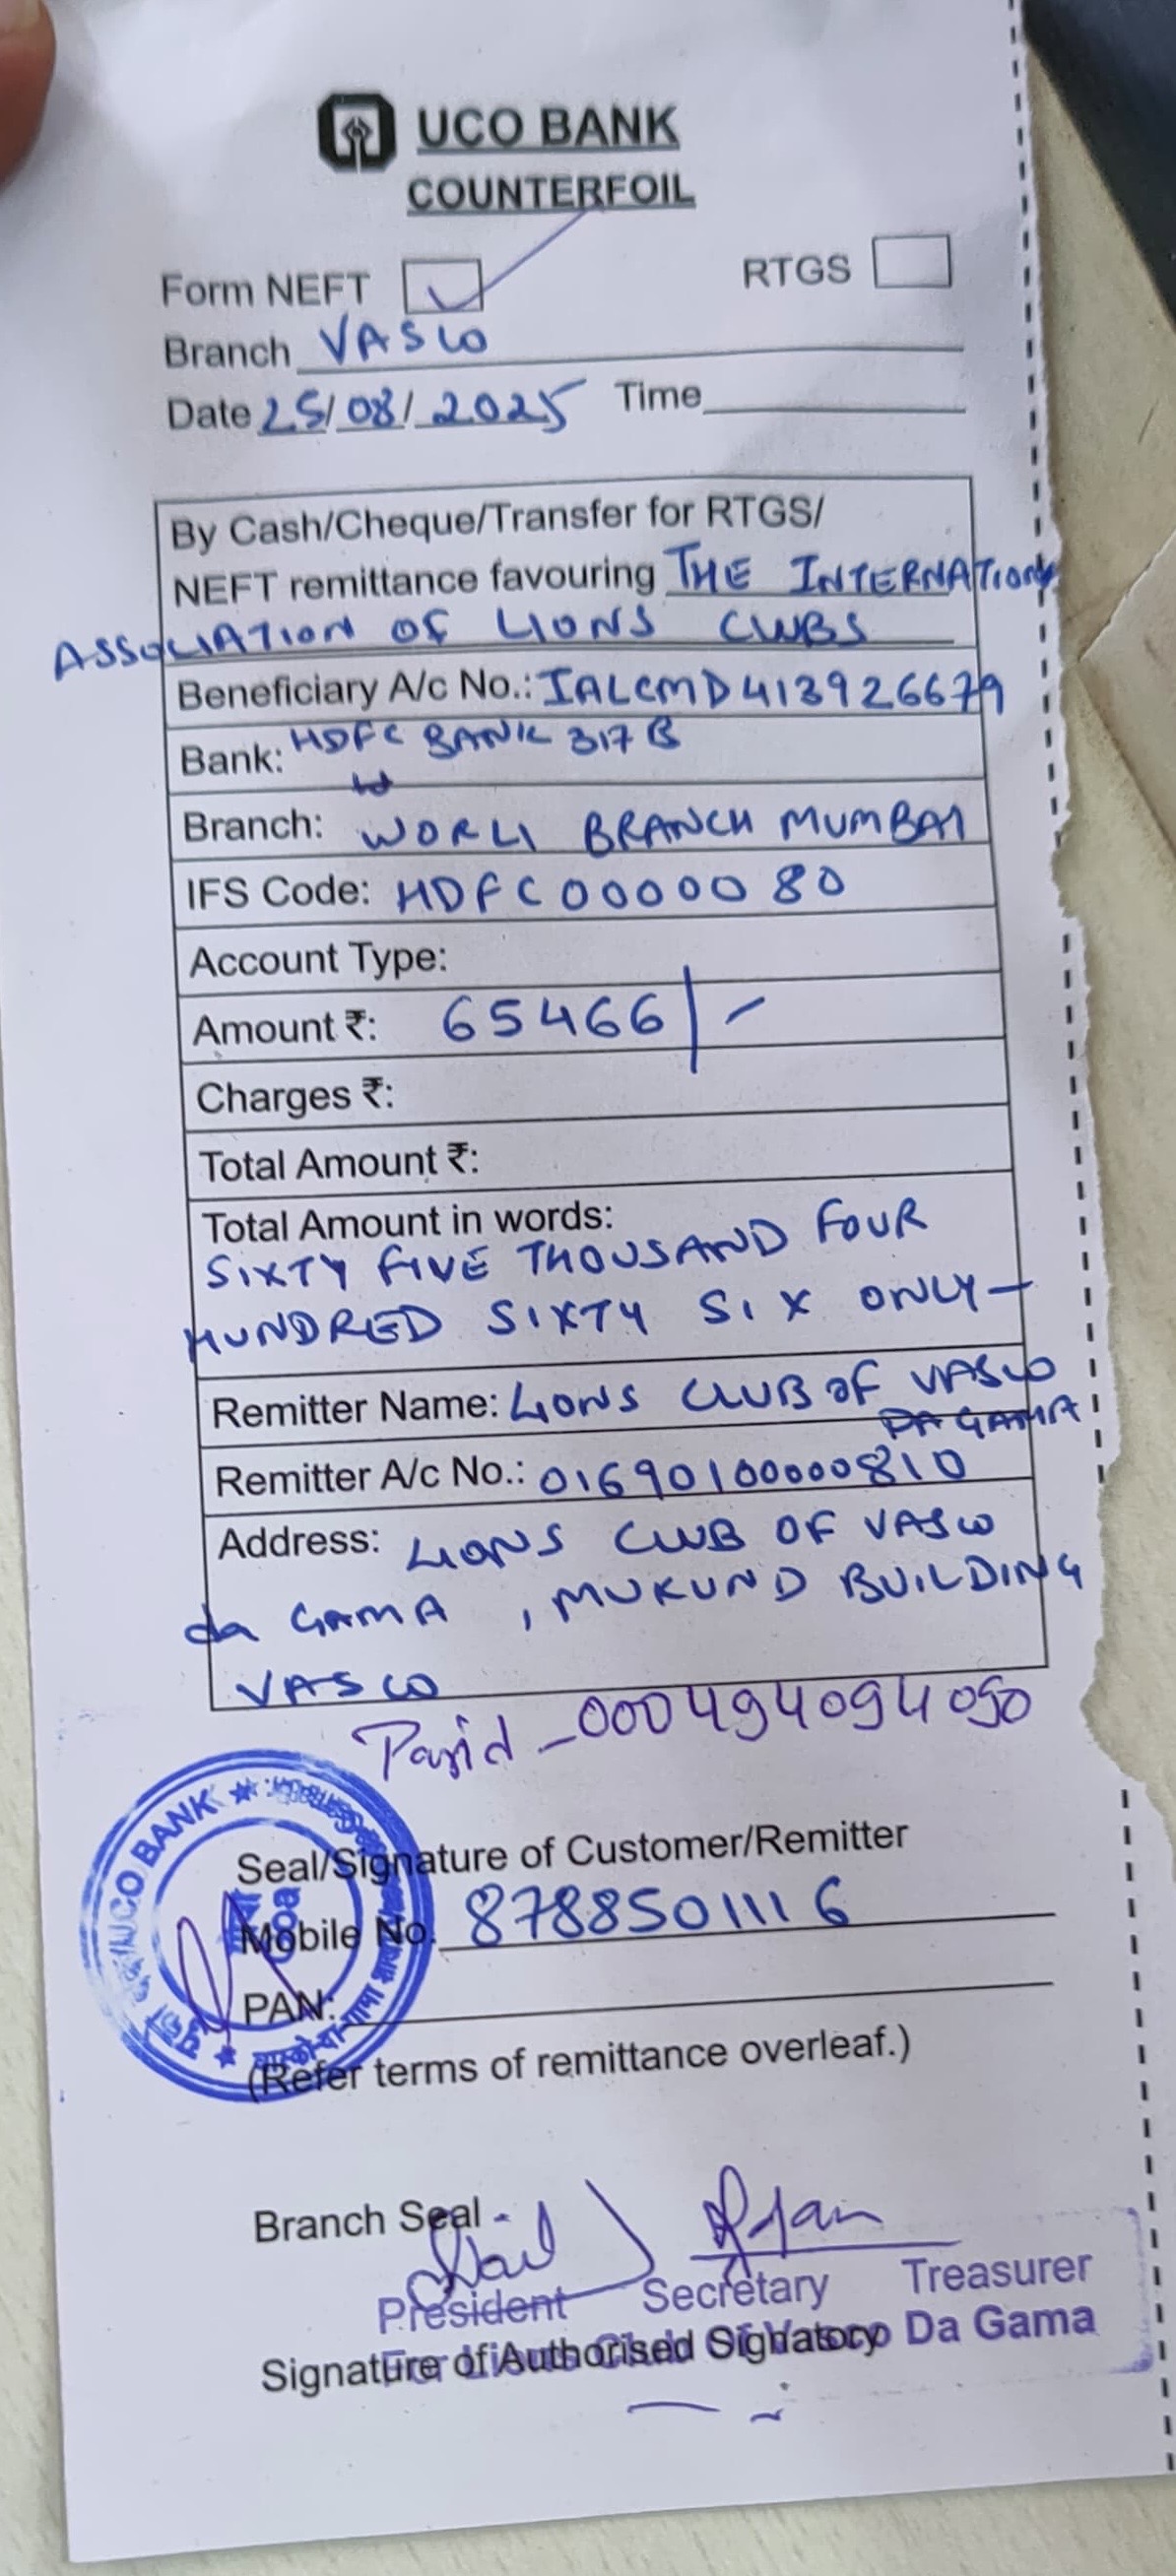 UCO BANK
COUNTERFOIL
Form NEFT RTGS
Branch VASCO
Date 25/08/2025 Time
By Cash/Cheque/Transfer for RTGS/
NEFT remittance favouring THE INTERNATIONAL
ASSOCIATION OF LIONS CLUBS
Beneficiary A/c No.: IALCMD413926679
Bank: HDFC BANK 317 B
Branch: WORLI BRANCH MUMBAI
IFS Code: HDFC0000080
Account Type:
Amount ₹: 65466/-
Charges ₹:
Total Amount ₹:
Total Amount in words:
SIXTY FIVE THOUSAND FOUR
HUNDRED SIXTY SIX ONLY-
Remitter Name: LIONS CLUB OF VASCO
DA GAMA
Remitter A/c No.: 01690100000810
Address: LIONS CLUB OF VASCO
da GAMA, MUKUND BUILDING
VASCO
000494094050
UCO BANK
Goa
Seal/Signature of Customer/Remitter
Mobile No. 8788501116
PAN:
(Refer terms of remittance overleaf.)
Branch Seal
President Secretary Treasurer
For Lions Club Of Vasco Da Gama
Signature of Authorised Signatory